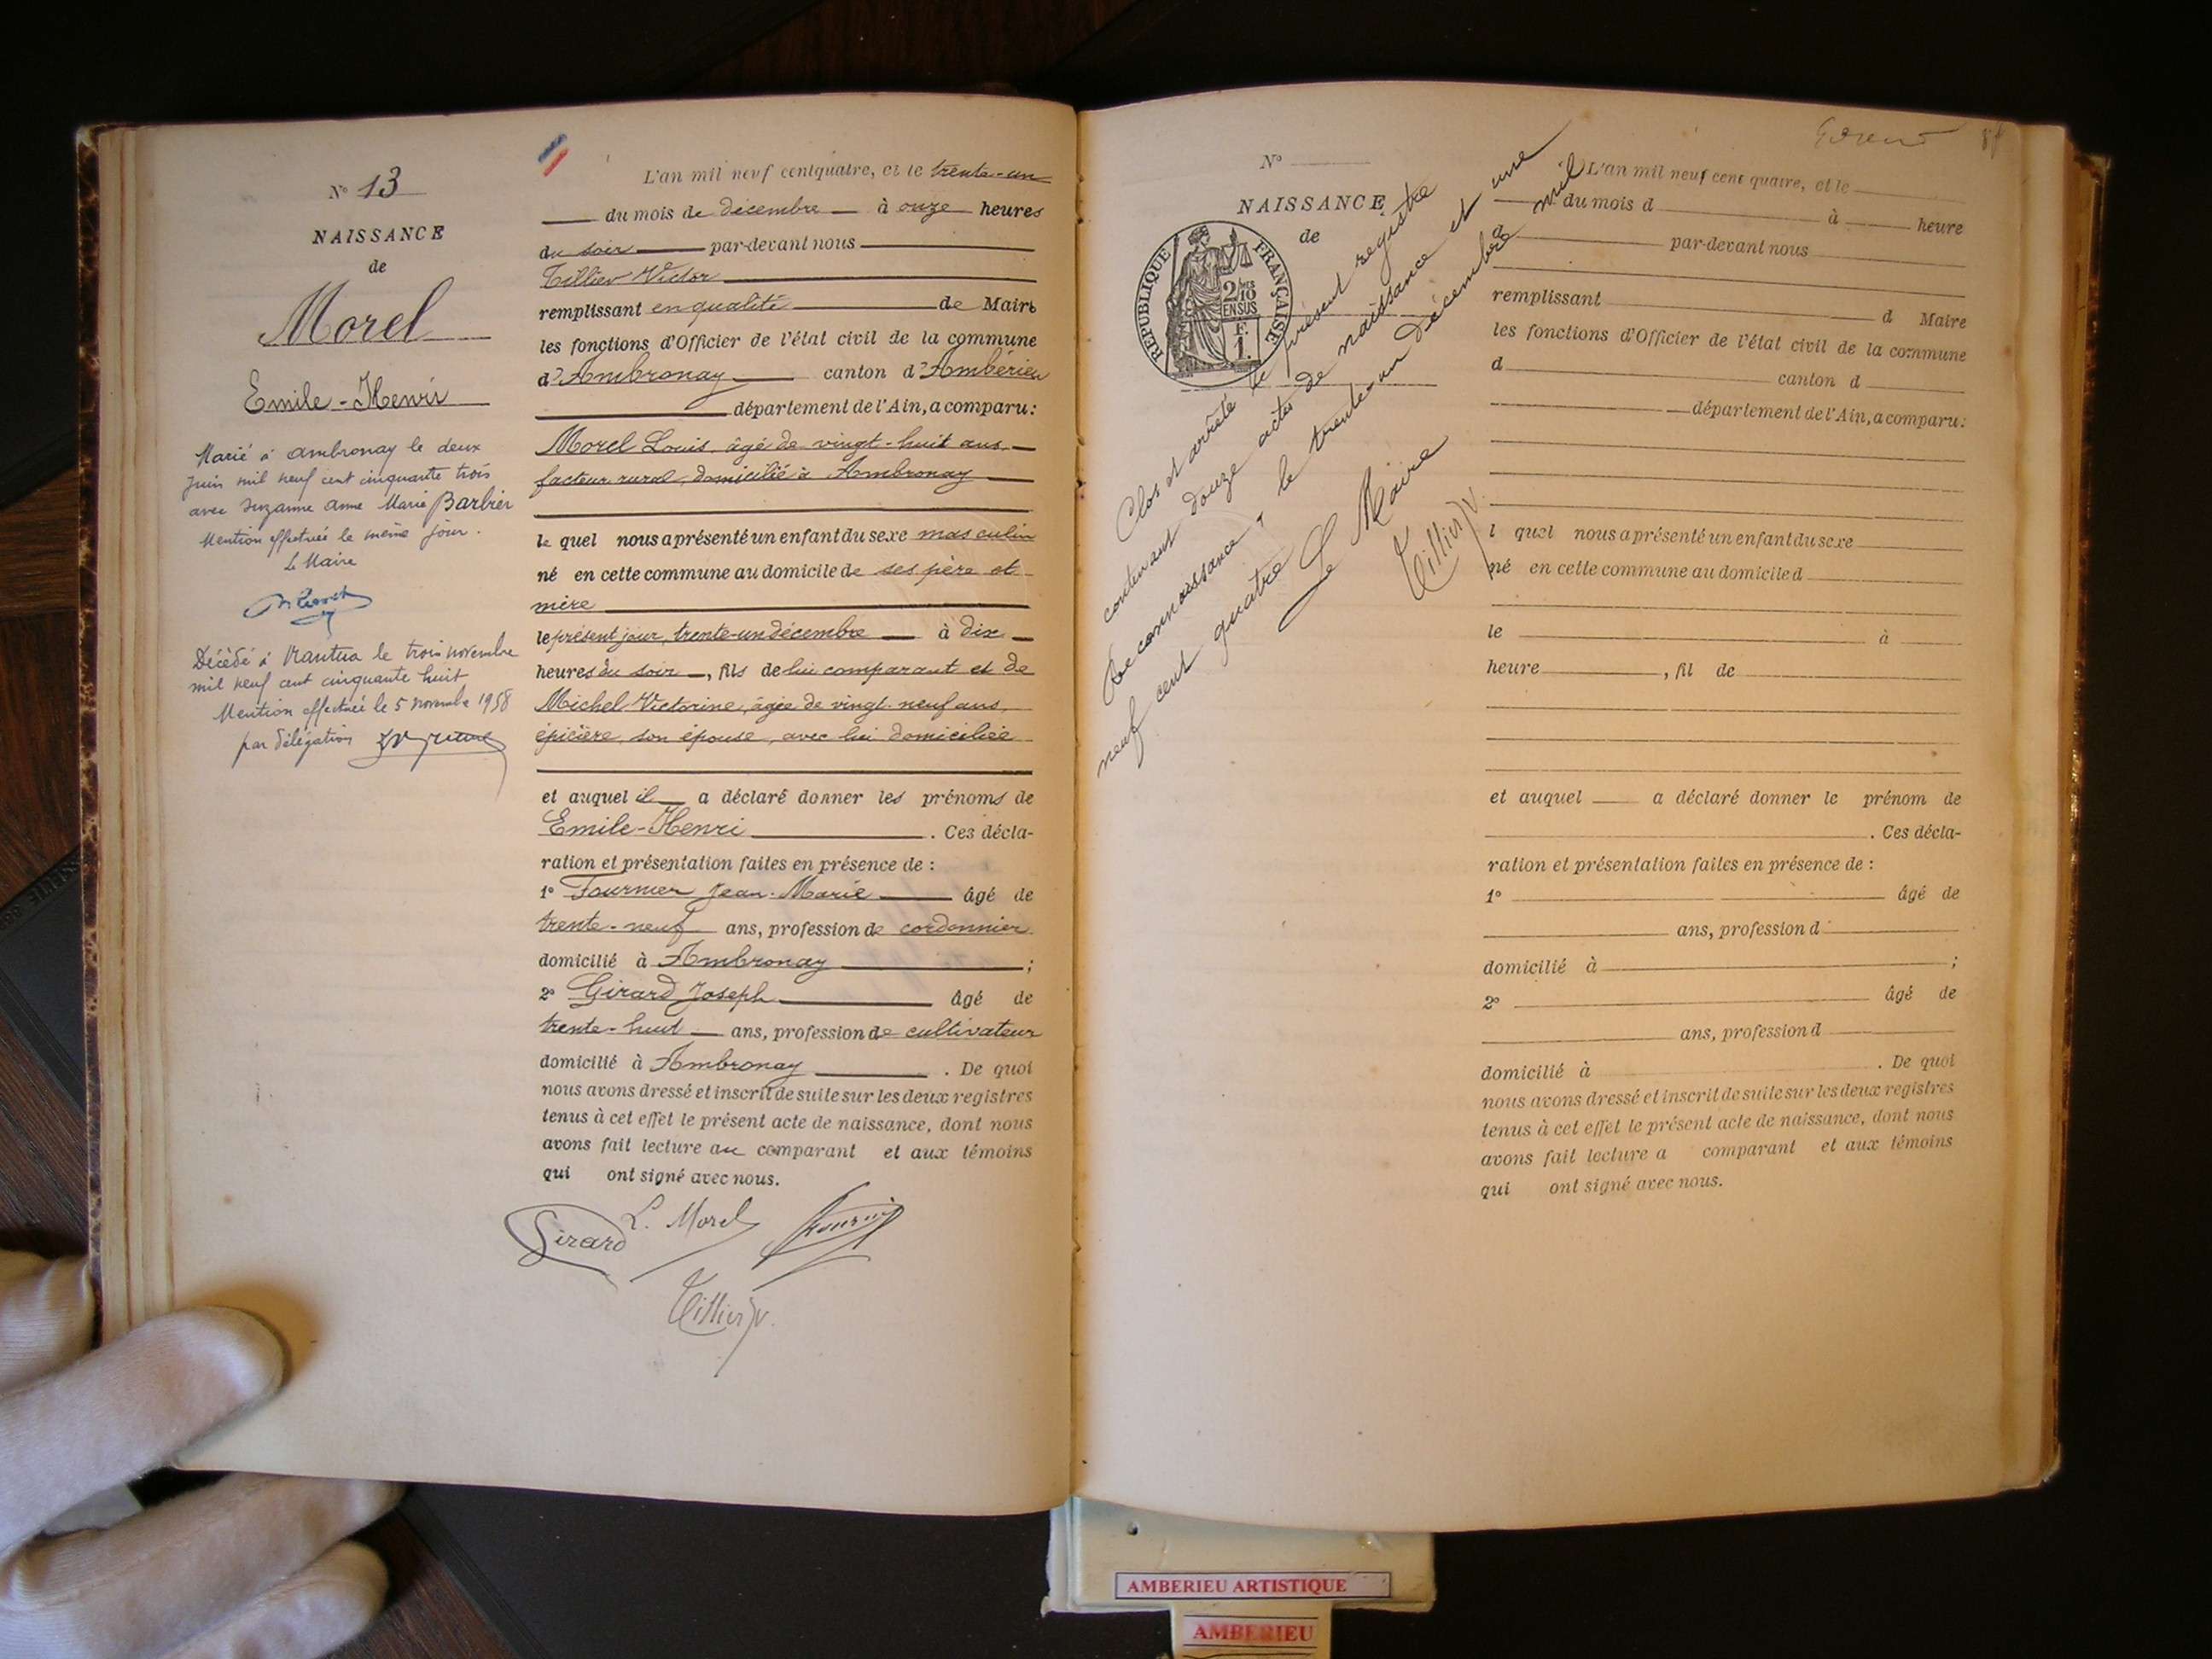 N° 13
NAISSANCE
de
Morel
Emile-Henri
Marié à Ambronay le deux
juin mil neuf cent cinquante trois
avec Suzanne Anne Marie Barbier
Mention effectuée le même jour.
Le Maire
Décédé à Nantua le trois novembre
mil neuf cent cinquante huit
Mention effectuée le 5 novembre 1958
par délégation
L'an mil neuf cent quatre, et le trente-un
du mois de décembre à onze heures
du soir par-devant nous
Tillier Victor
remplissant en qualité de Maire
les fonctions d'Officier de l'état civil de la commune
d'Ambronay canton d'Ambérieu
département de l'Ain, a comparu :
Morel Louis, âgé de vingt-huit ans,
facteur rural, domicilié à Ambronay
le quel nous a présenté un enfant du sexe masculin
né en cette commune au domicile de ses père et
mère
le présent jour, trente-un décembre à dix
heures du soir, fils de lui comparant et de
Michel Victorine, âgée de vingt-neuf ans,
épicière, son épouse, avec lui domiciliée
et auquel il a déclaré donner les prénoms de
Emile-Henri. Ces décla-
ration et présentation faites en présence de :
1° Fournier Jean-Marie âgé de
trente-neuf ans, profession de cordonnier
domicilié à Ambronay ;
2° Girard Joseph âgé de
trente-huit ans, profession de cultivateur
domicilié à Ambronay. De quoi
nous avons dressé et inscrit de suite sur les deux registres
tenus à cet effet le présent acte de naissance, dont nous
avons fait lecture au comparant et aux témoins
qui ont signé avec nous.
Girard L. Morel Fournier
Tillier V.
N°
NAISSANCE
de
RÉPUBLIQUE FRANÇAISE
2/10
EN SUS
F.
1.
Clos et arrêté le présent registre
contenant douze actes de naissance et une
Reconnaissance, le trente un décembre mil
neuf cent quatre
Le Maire
Tillier V.
L'an mil neuf cent quatre, et le
du mois d à heure
d par-devant nous
remplissant d Maire
les fonctions d'Officier de l'état civil de la commune
d canton d
département de l'Ain, a comparu :
l quel nous a présenté un enfant du sexe
né en cette commune au domicile d
le à
heure , fil de
et auquel a déclaré donner le prénom de
. Ces décla-
ration et présentation faites en présence de :
1° âgé de
ans, profession d
domicilié à ;
2° âgé de
ans, profession d
domicilié à . De quoi
nous avons dressé et inscrit de suite sur les deux registres
tenus à cet effet le présent acte de naissance, dont nous
avons fait lecture a comparant et aux témoins
qui ont signé avec nous.
AMBERIEU ARTISTIQUE
AMBERIEU